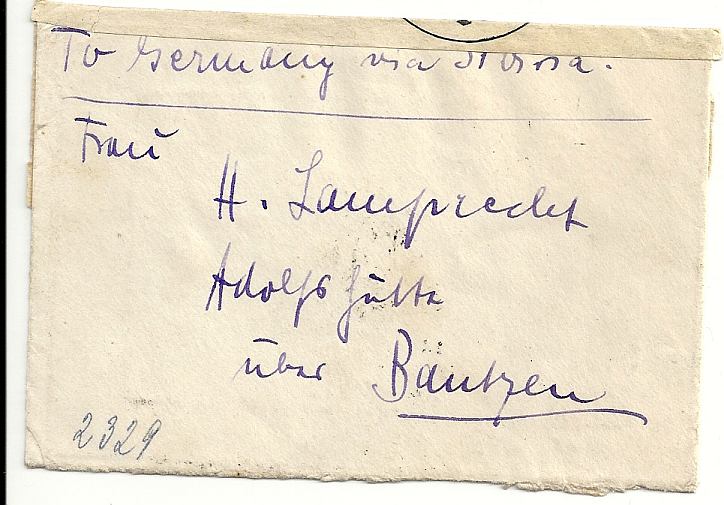 To Germany via
Frau
H. Lamprecht
Adolfshütte
über Bautzen
2329